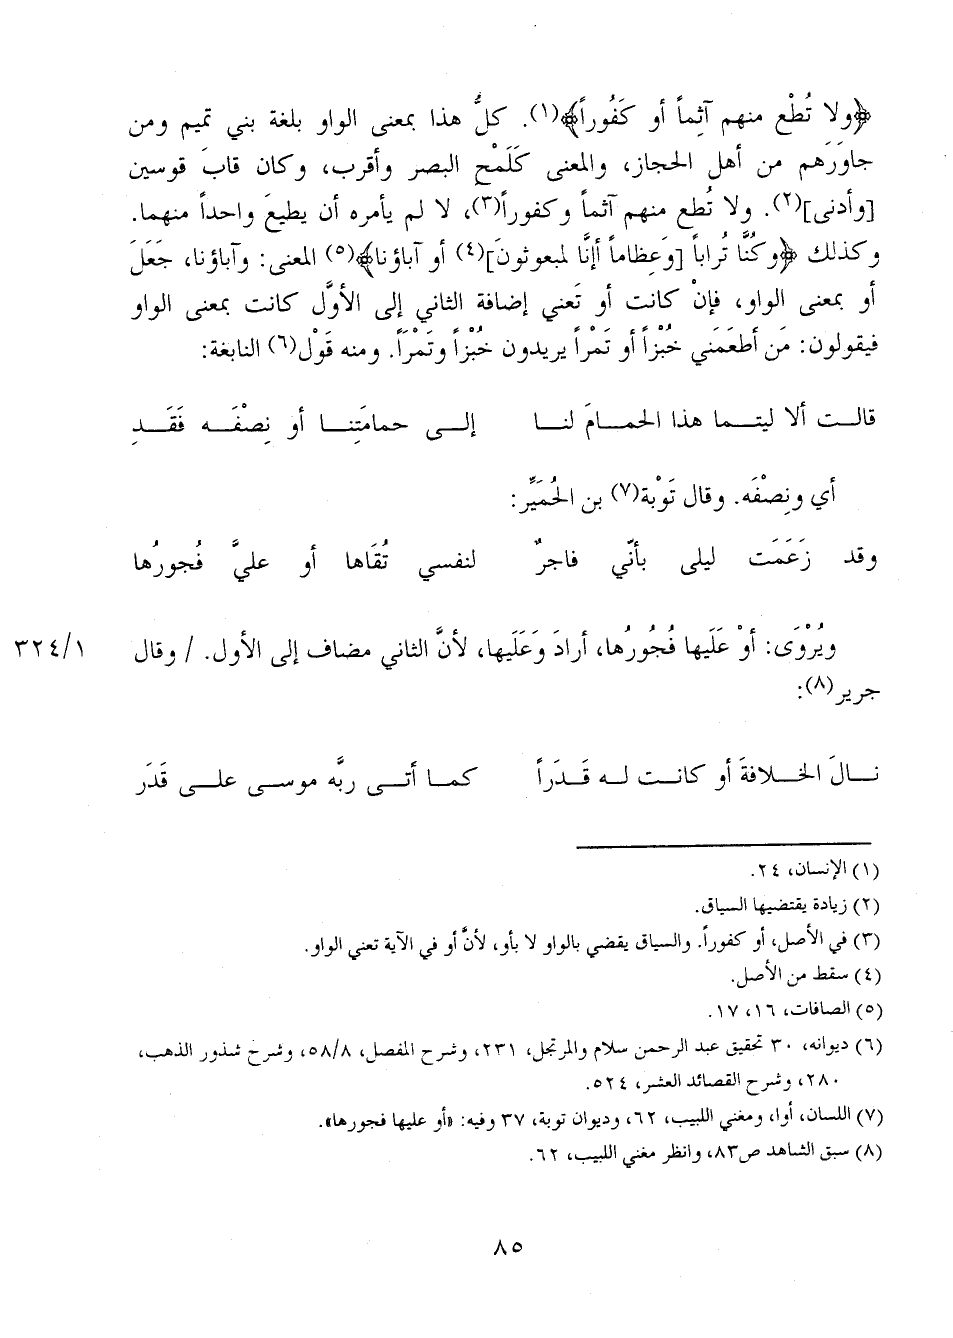 ﴿ولا تُطْع منهم آثِماً أو كَفُوراً﴾(١). كلُّ هذا بمعنى الواو بلغة بني تميم ومن
جاوَرَهم من أهل الحجاز، والمعنى كَلَمْح البصر وأقرب، وكان قابَ قوسين
[وأدنى](٢). ولا تُطع منهم آثماً وكفوراً(٣)، لا لم يأمره أن يطيعَ واحداً منهما.
وكذلك ﴿وكُنَّا تُراباً [وَعِظاماً أإنَّا لمبعوثونَ](٤) أو آباؤنا﴾(٥) المعنى: وآباؤنا، جَعَلَ
أو بمعنى الواو، فإنْ كانت أو تَعني إضافة الثاني إلى الأوَّل كانت بمعنى الواو
فيقولون: مَن أطعَمَني خُبْزاً أو تَمْراً يريدون خُبْزاً وتَمْرَاً. ومنه قَوْل(٦) النابغة:
قالـت ألا ليتـما هذا الحمامَ لنـا إلى حمامَتِنـا أو نِصْفَـه فَقَـدِ
أي ونِصْفَه. وقال تَوْبة(٧) بن الحُمَيِّر:
وقد زَعَمَت ليلى بأنّي فاجرٌ لنفسي تُقَاها أو عليَّ فُجورُها
ويُرْوَى: أوْ عَلَيها فُجُورُها، أرادَ وَعَلَيها، لأنَّ الثاني مضاف إلى الأول. / وقال ٣٢٤/١
جرير(٨):
نـالَ الخـلافةَ أو كانـت لـه قَـدَراً كمـا أتـى ربَّه موسـى علـى قَدَر
(١) الإنسان، ٢٤.
(٢) زيادة يقتضيها السياق.
(٣) في الأصل، أو كفوراً. والسياق يقضي بالواو لا بأو، لأنَّ أو في الآية تعني الواو.
(٤) سقط من الأصل.
(٥) الصافات، ١٦، ١٧.
(٦) ديوانه، ٣٠ تحقيق عبد الرحمن سلام والمرتجل، ٢٣١، وشرح المفصل، ٥٨/٨، وشرح شذور الذهب،
٢٨٠، وشرح القصائد العشر، ٥٢٤.
(٧) اللسان، أوا، ومغني اللبيب، ٦٢، وديوان توبة، ٣٧ وفيه: «أو عليها فجورها».
(٨) سبق الشاهد ص٨٣، وانظر مغني اللبيب، ٦٢.
٨٥